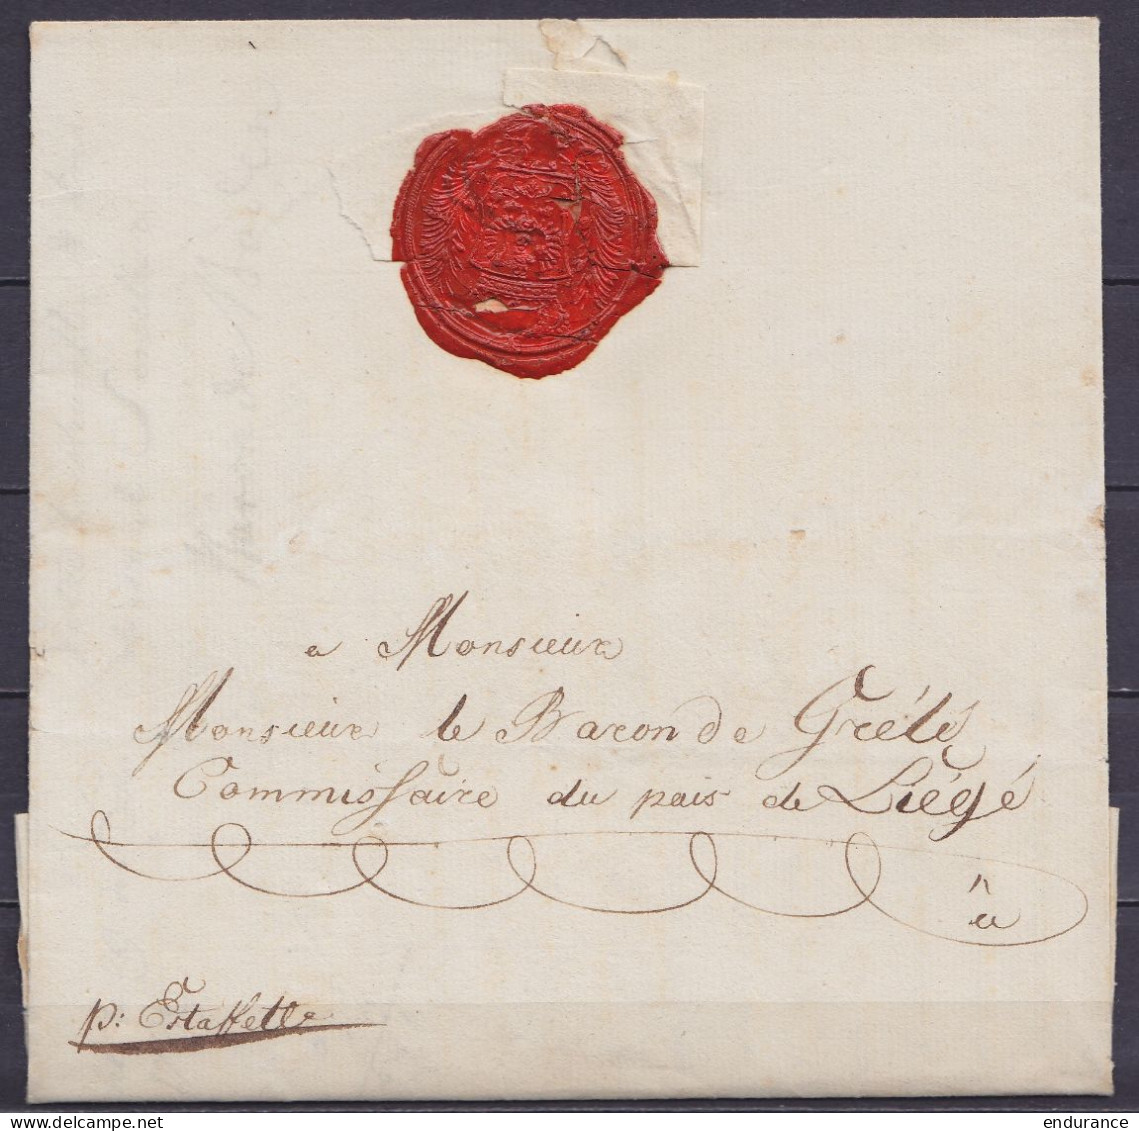 a Monsieur
Monsieur le Baron de Grélé
Commissaire du pais de Liégé
à
p: Estaffette
delcampe.net
endurance